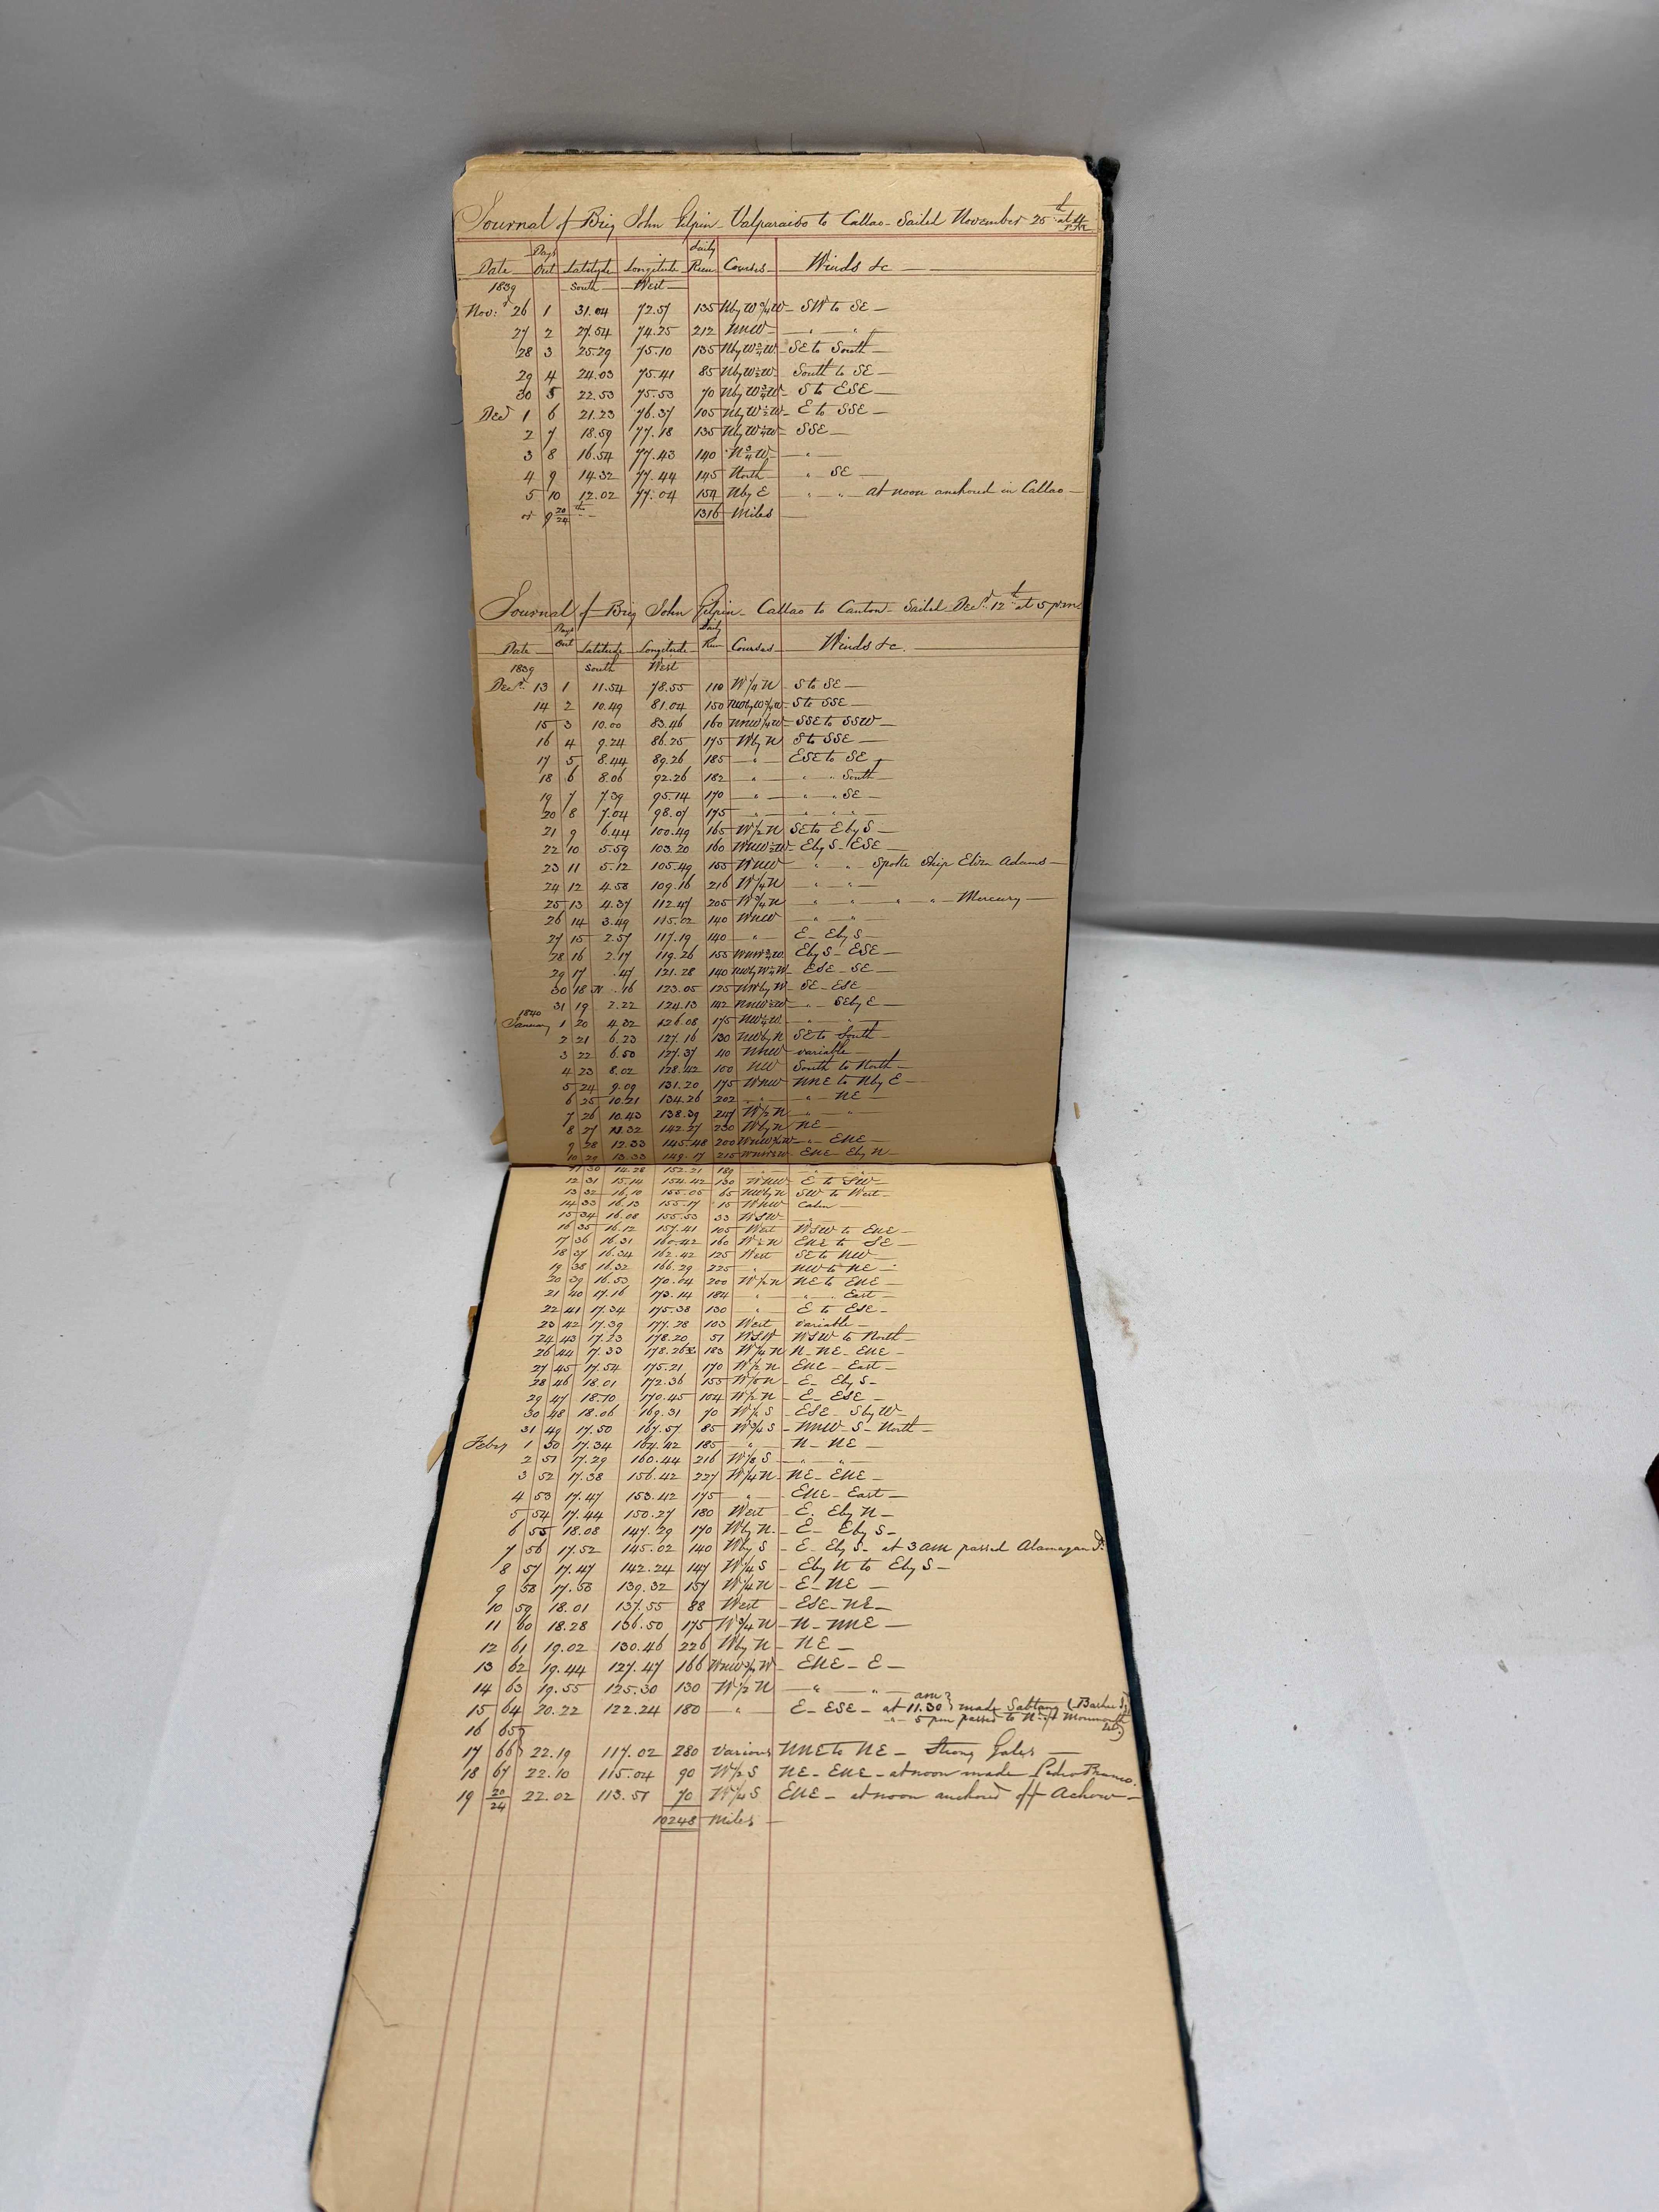 Journal of Brig John Gilpin - Valparaiso to Callao - Sailed November 25th at 4 P.M.
Date Days Out Latitude Longitude Daily Run Courses Winds &c
1839 South West
Nov: 26 1 31.04 72.57 135 NbyW 3/4 W SW to SE
27 2 27.54 74.25 212 NNW " "
28 3 25.29 75.10 135 NbyW 3/4 W SE to South
29 4 24.03 75.41 85 NbyW 1/2 W South to SE
30 5 22.53 75.53 70 NbyW 3/4 W S to ESE
Dec 1 6 21.23 76.37 105 NbyW 1/2 W E to SSE
2 7 18.59 77.18 135 NbyW 1/4 W SSE
3 8 16.54 77.43 140 N 3/4 W "
4 9 14.32 77.44 145 North " SE
5 10 12.02 77.04 154 NbyE " " at noon anchored in Callao
or 9 20/24 ths 1316 Miles
Journal of Brig John Gilpin - Callao to Canton - Sailed Decr. 12th at 5 p.m.
Date Days Out Latitude Longitude Daily Run Courses Winds &c.
1839 South West
Decr. 13 1 11.54 78.55 110 W 1/4 N S to SE
14 2 10.49 81.04 150 NWbyW 3/4 W S to SSE
15 3 10.00 83.46 160 WNW 1/4 W SSE to SSW
16 4 9.24 86.25 175 Wby N S to SSE
17 5 8.44 89.26 185 " ESE to SE
18 6 8.06 92.26 182 " " " South
19 7 7.39 95.14 170 " " " SE
20 8 7.04 98.07 175 " " " "
21 9 6.44 100.49 165 W 1/2 N SE to E by S
22 10 5.59 103.20 160 WNW 1/2 W EbyS - ESE
23 11 5.12 105.49 155 WNW " " Spoke Ship Eliza Adams
24 12 4.58 109.16 216 W 1/4 N " "
25 13 4.37 112.47 205 W 3/4 N " " " " Mercury
26 14 3.49 115.02 140 WNW " "
27 15 2.57 117.19 140 " E - EbyS
28 16 2.17 119.26 155 WNW 3/4 W EbyS - ESE
29 17 .47 121.28 140 NWbyW 1/4 W ESE - SE
30 18 N .16 123.05 125 NWbyW SE - ESE
31 19 2.22 124.13 142 NNW 1/2 W " SEbyE
1840
January 1 20 4.32 126.08 175 NW 1/4 W " "
2 21 6.23 127.16 130 NWbyN SE to South
3 22 6.50 127.37 40 NNW variable
4 23 8.02 128.42 100 NW South to North
5 24 9.09 131.20 175 WNW NNE to NbyE
6 25 10.21 134.26 202 " " NE
7 26 10.43 138.39 247 W 1/2 N " "
8 27 11.32 142.27 230 WbyN NE
9 28 12.33 145.48 200 WNW 3/4 W " ENE
10 29 13.33 149.17 215 WNW 3/4 W ENE EbyN
11 30 14.28 152.21 189 " " "
12 31 15.14 154.42 130 WNW E to SW
13 32 16.10 155.05 65 NWbyN SW to West
14 33 16.13 155.17 15 WNW Calm
15 34 16.08 155.53 33 WSW "
16 35 16.12 157.41 105 West WSW to ENE
17 36 16.31 160.42 160 W 1/2 N ENE to SE
18 37 16.34 162.42 125 West SE to NW
19 38 16.32 166.29 225 " NW to NE
20 39 16.53 170.04 200 W 1/2 N NE to ENE
21 40 17.16 173.14 184 " " East
22 41 17.34 175.38 130 " E to ESE
23 42 17.39 177.28 103 West variable
24 43 17.23 178.20 51 WSW WSW to North
26 44 17.33 178.26 E 183 W 1/4 N N - NE - ENE
27 45 17.54 175.21 170 W 1/2 N ENE - East
28 46 18.01 172.36 155 W 1/8 N E - EbyS
29 47 18.10 170.45 104 W 1/2 N E - ESE
30 48 18.06 169.31 70 W 1/2 S ESE - SbyW
31 49 17.50 167.57 85 W 3/4 S NNW - S - North
Feby 1 50 17.34 164.42 185 " N - NE
2 51 17.29 160.44 216 W 1/8 S " "
3 52 17.38 156.42 227 W 1/4 N NE - ENE
4 53 17.47 153.42 175 " ENE - East
5 54 17.44 150.27 180 West E. EbyN
6 55 18.08 147.29 170 Wby N. E - EbyS
7 56 17.52 145.02 140 Wby S E - EbyS - at 3 am passed Alamagan I.
8 57 17.47 142.24 147 W 1/4 S EbyN to EbyS
9 58 17.58 139.32 157 W 1/4 N E - NE
10 59 18.01 137.55 88 West ESE - NE
11 60 18.28 136.50 175 W 3/4 N N - NNE
12 61 19.02 130.46 226 Wby N NE
13 62 19.44 127.47 166 WNW 3/4 W ENE - E
14 63 19.55 125.30 130 W 1/2 N " "
15 64 20.22 122.24 180 " E - ESE - at 11.30 am made Sabtang (Bashee Is)
" 5 pm passed to N. of Monmouth
16 65
17 66 22.19 117.02 280 Various NNE to NE - Strong Gales
18 67 22.10 115.04 90 W 1/2 S NE - ENE - at noon made Pedro Branco.
19 20/24 22.02 113.51 70 W 1/4 S ENE - at noon anchored off Achow
10248 Miles